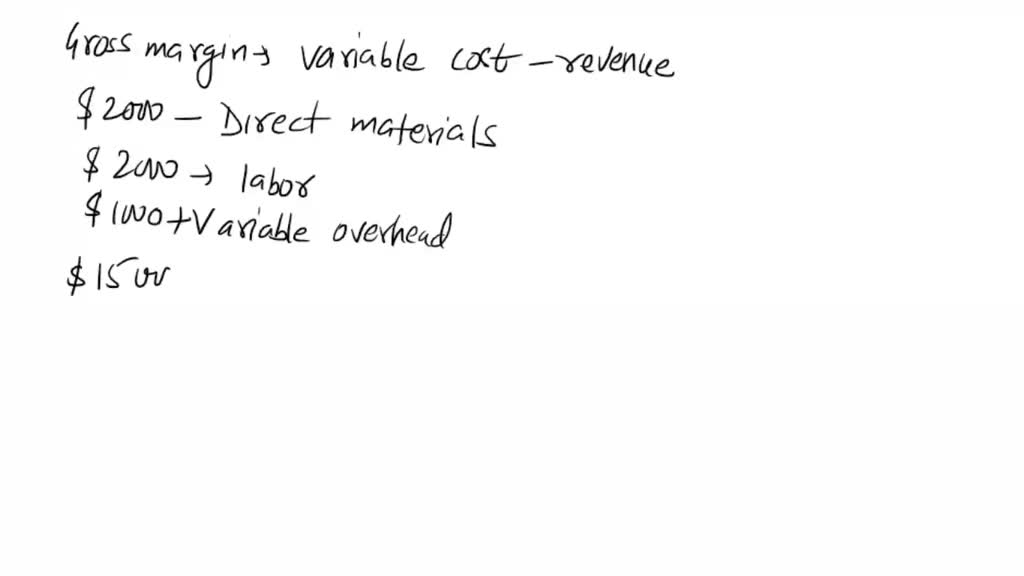 Gross margin → variable cost - revenue
$2000 - Direct materials
$2000 → labor
$1000 + Variable overhead
$1500